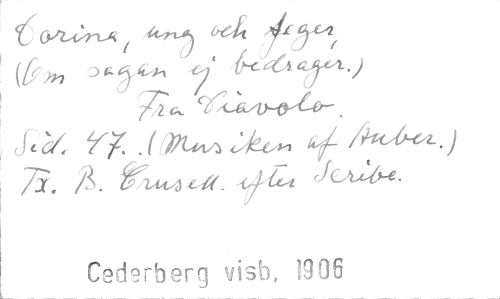 Dorina, ung och feger,
(Om sagan ej bedrager.)
Fra Diavolo.
Sid. 47. (Musiken af Auber.)
Tx. B. Crusell. efter Scribe.
Cederberg visb, 1906